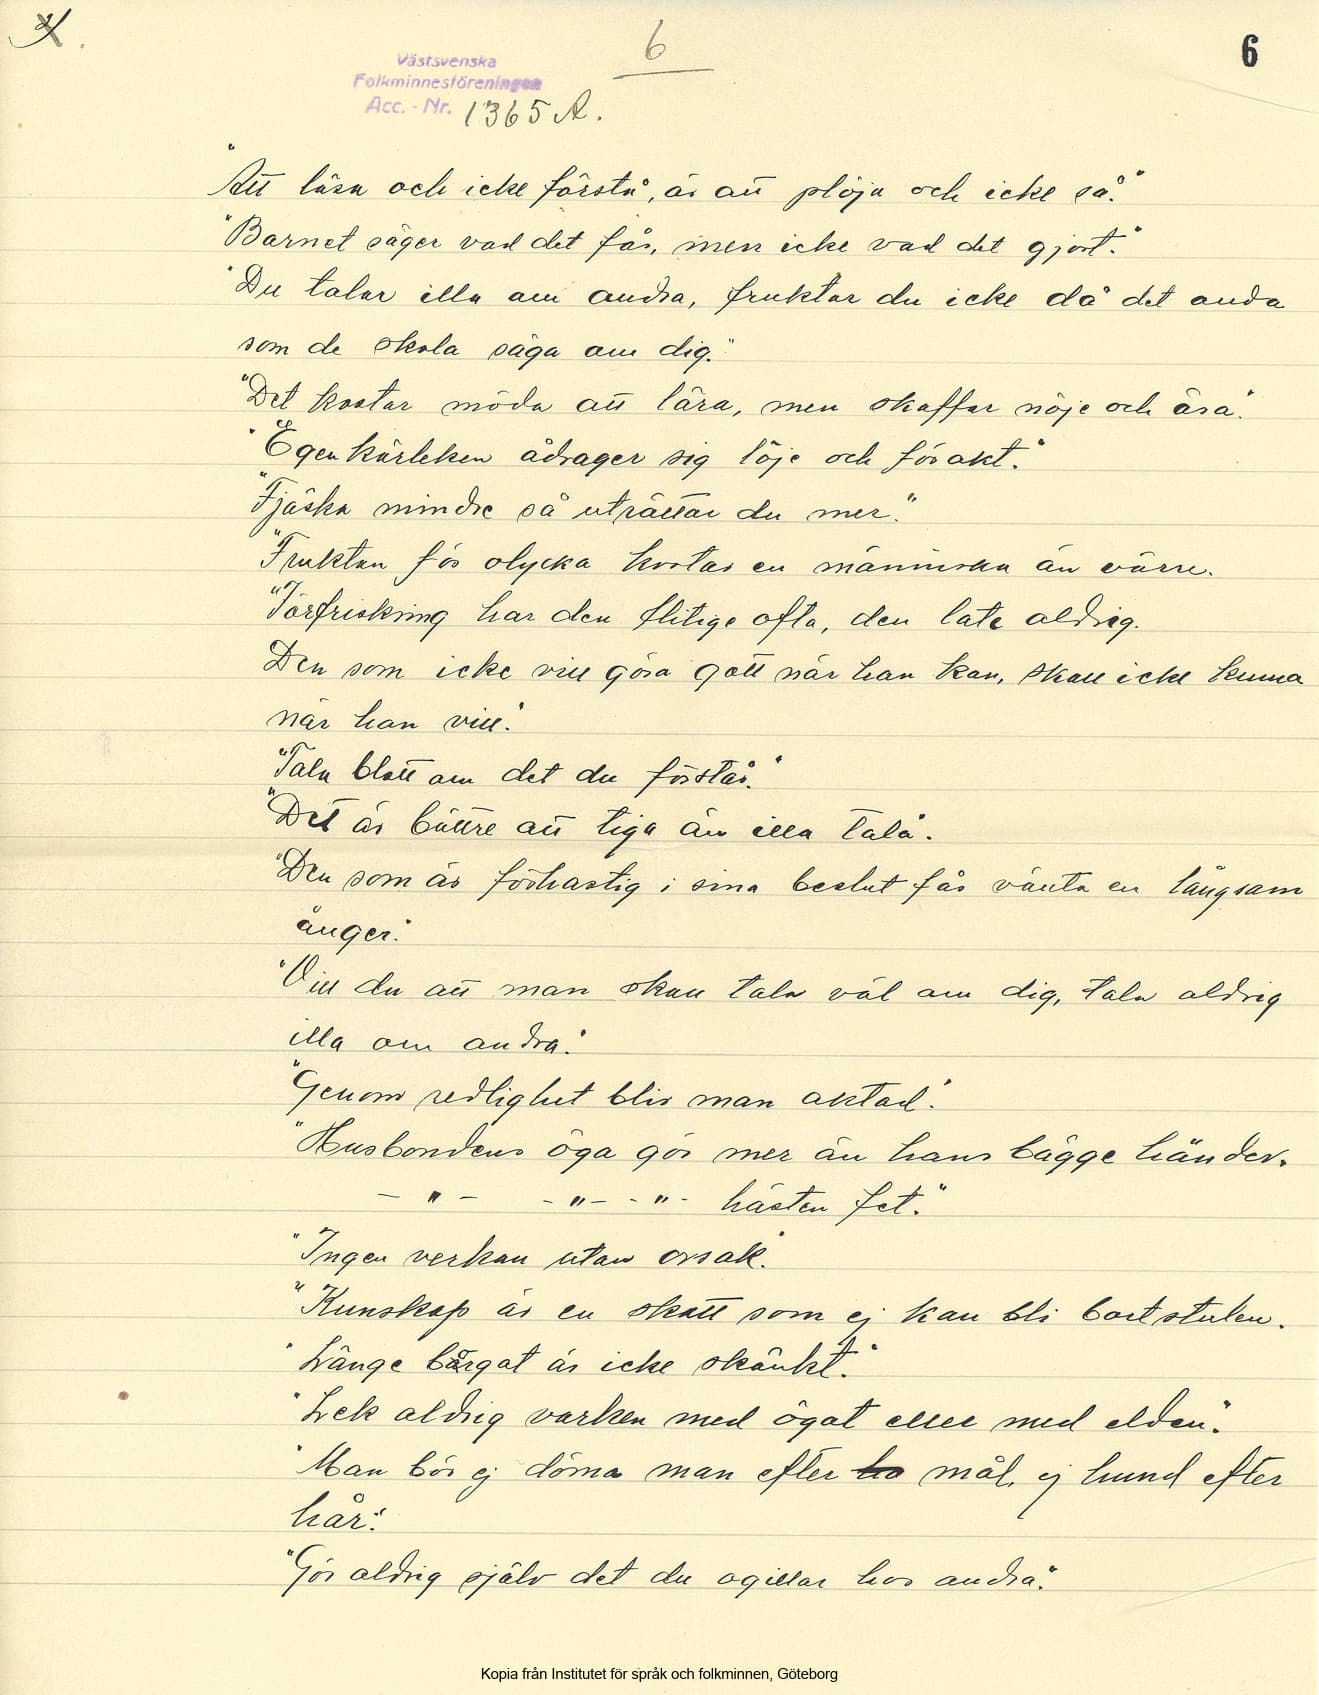 6
6
Västsvenska
Folkminnesföreningen
Acc. - Nr. 1365 A.
"Att läsa och icke förstå, är att plöja och icke så."
"Barnet säger vad det får, men icke vad det gjort."
"Du talar illa om andra, fruktar du icke då det onda
som de skola säga om dig."
"Det kostar möda att lära, men skaffar nöje och ära".
"Egenkärleken ådrager sig löje och förakt."
"Fjäska mindre så uträttar du mer."
"Fruktan för olycka kostar en människa än värre.
"Förfriskning har den flitige ofta, den late aldrig.
Den som icke vill göra gott när han kan, skall icke kunna
när han vill".
"Tala blott om det du förstår."
"Det är bättre att tiga än illa tala".
"Den som är förhastig i sina beslut får vänta en långsam
ånger".
"Vill du att man skall tala väl om dig, tala aldrig
illa om andra".
"Genom redlighet blir man aktad".
"Husbondens öga gör mer än hans bägge händer.
– " – – " – - " - hästen fet."
"Ingen verkan utan orsak".
"Kunskap är en skatt som ej kan bli bortstulen.
"Länge borgat är icke skänkt."
"Lek aldrig varken med ögat eller med elden".
"Man bör ej döma man efter ho mål, ej hund efter
hår".
"Gör aldrig själv det du ogillar hos andra".
Kopia från Institutet för språk och folkminnen, Göteborg